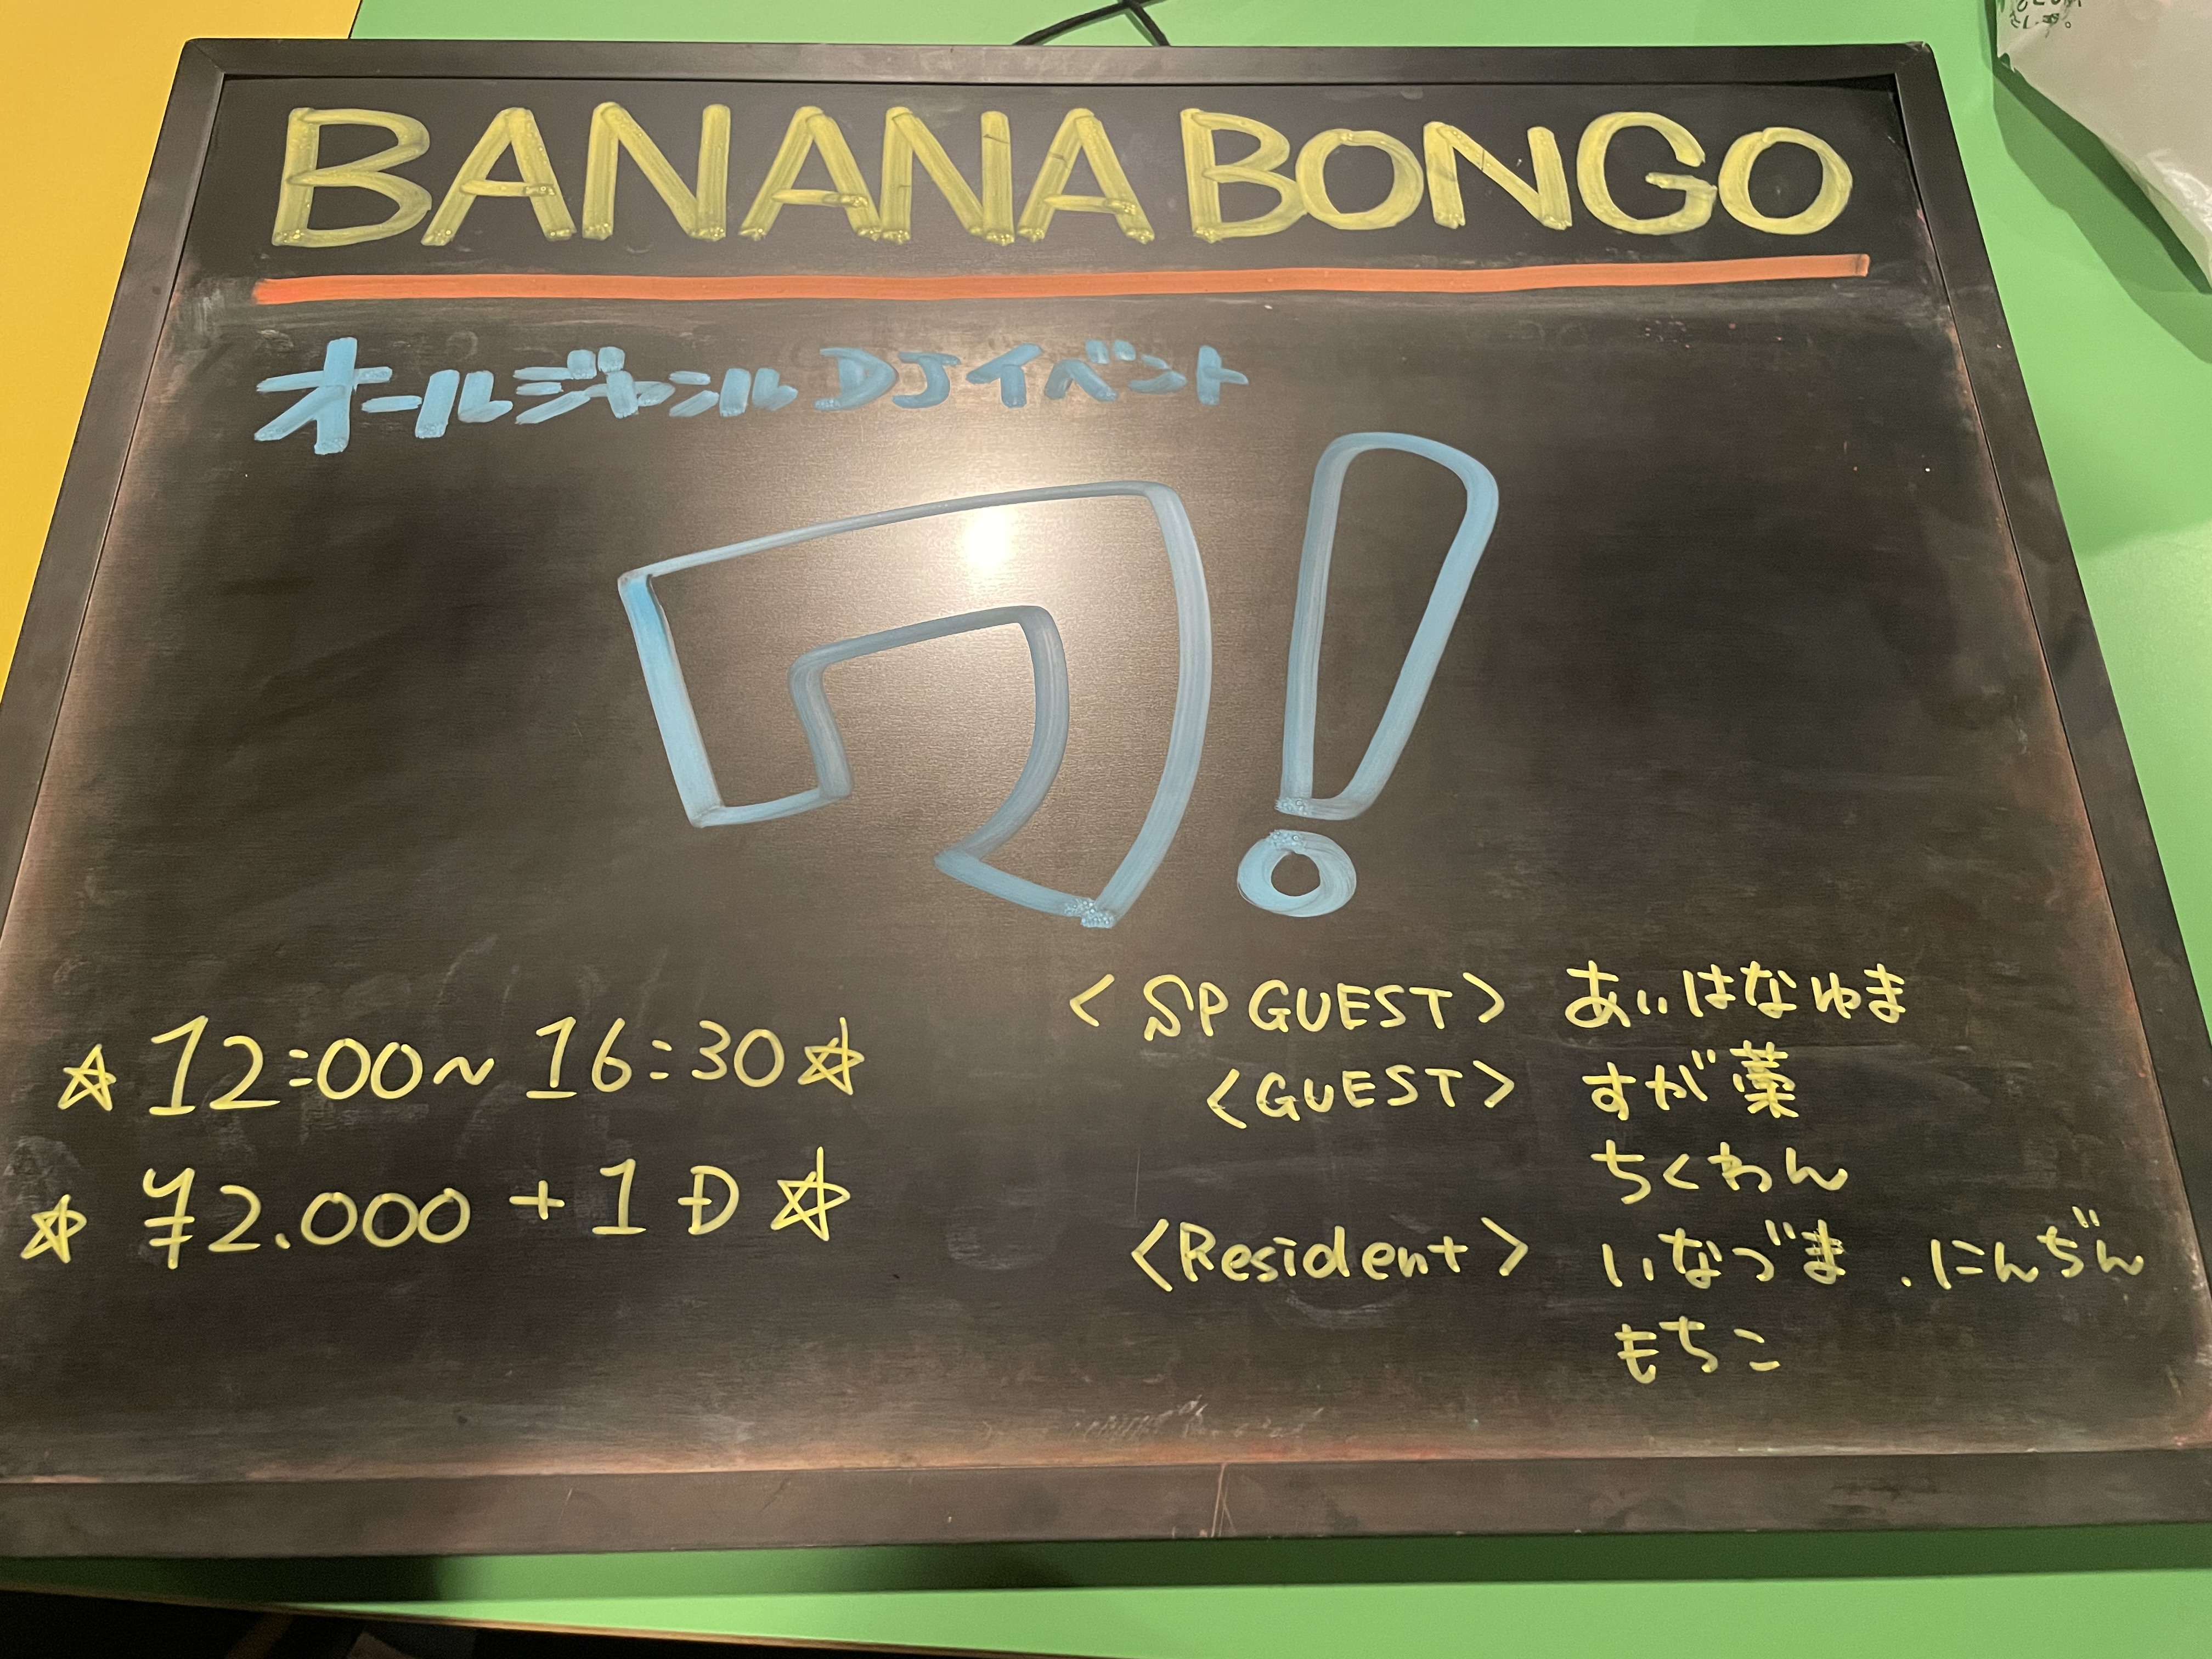 BANANA BONGO
オールジャンルDJイベント
ワ!
☆12:00~16:30☆
☆¥2.000+1D☆
<SP GUEST> あいはなゆま
<GUEST> すが薬
ちくわん
<Resident> いなづま.にんぢん
もちこ